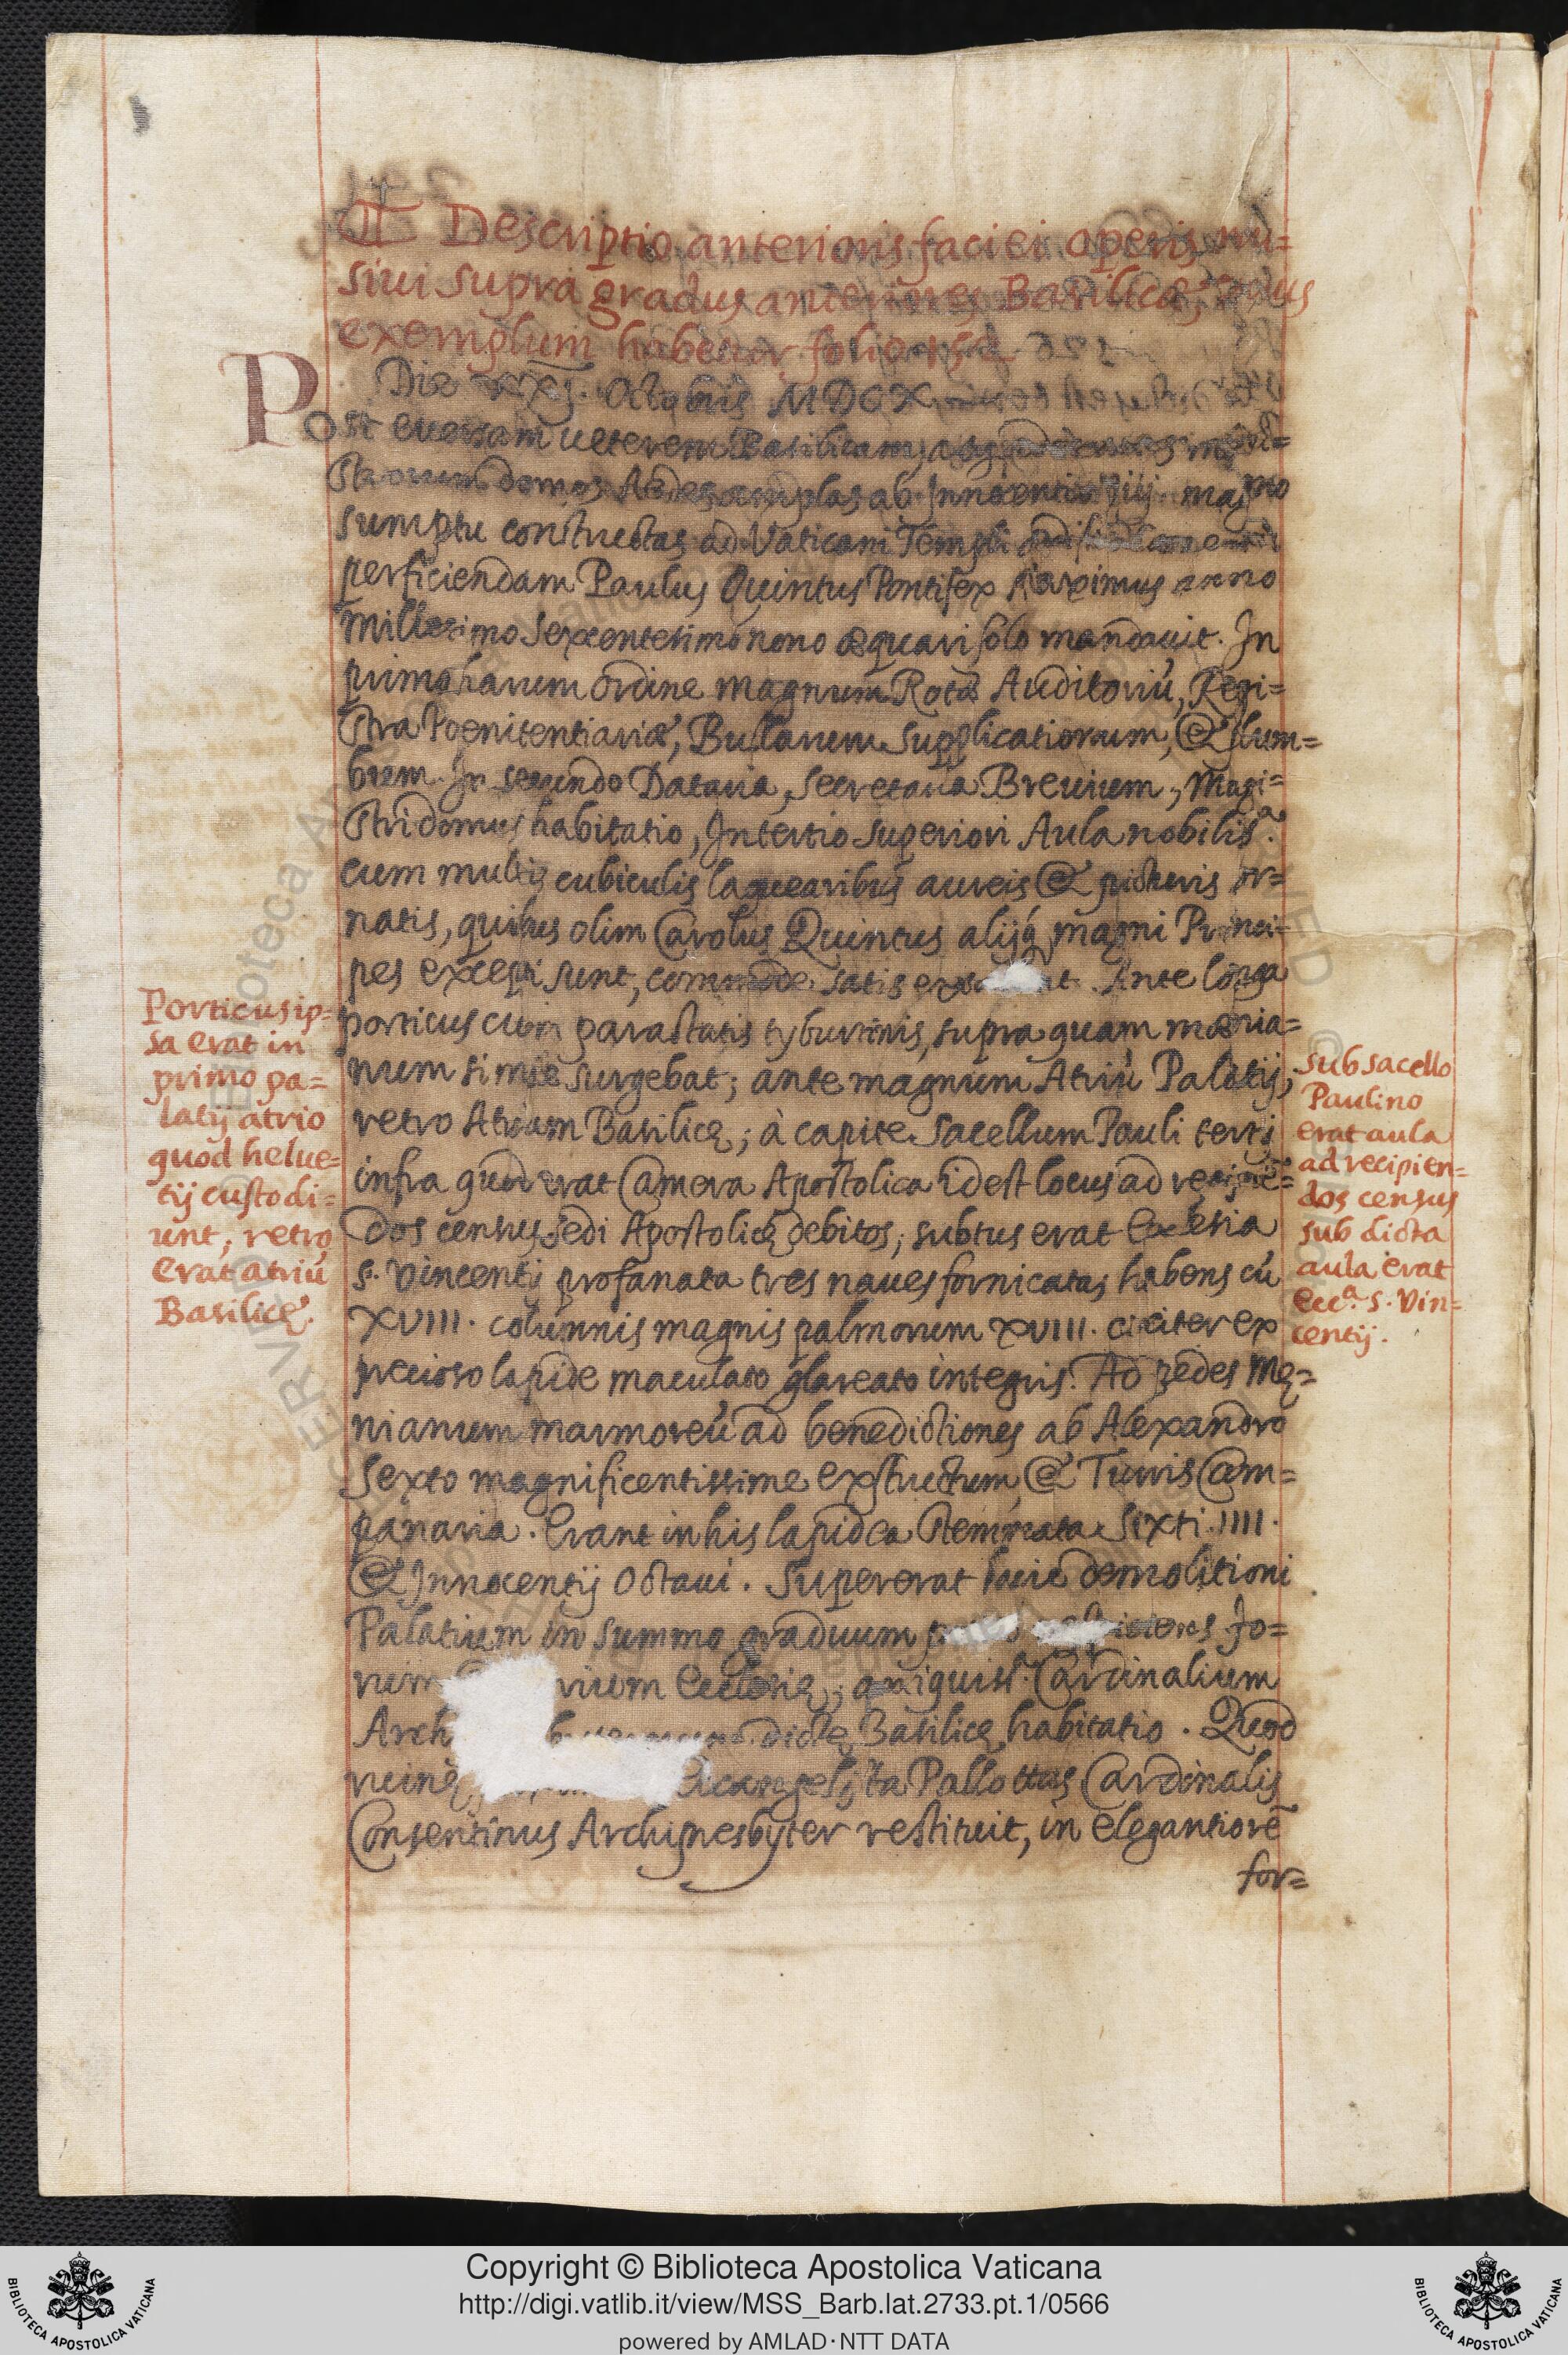 Descriptio anterioris faciei operis mu=
siui supra gradus anteriores Basilicæ, cuius
exemplum habetur folio 152
Die Octobris MDCX
Post euersam ueterem Basilicam,
domos Aedes amplas ab Innocentio Viij. magno
sumptu constructas ad Vaticani Templi
perficiendam Paulus Quintus Pontifex Maximus anno
Millesimo sexcentesimo nono æquari solo mandauit. In
primo harum ordine magnum Rotæ Auditoriũ, Regi=
stra Poenitentiariæ, Bullarum Supplicationum, & plum=
bum. In secundo Dataria, Secretaria Breuium, Magi=
stri domus habitatio, In tertio superiori Aula nobiliss.ª
cum multis cubiculis laquearibus aureis & picturis or=
natis, quibus olim Carolus Quintus alijq magni Princi=
pes excepti sunt, commode satis . Ante longa
porticus cum parastatis tyburtinis, supra quam mœnia=
num simile surgebat; ante magnum Atriũ Palatij,
retro Atrium Basilicę; à capite Sacellum Pauli tertij
infra quod erat Camera Apostolica idest locus ad recipiẽ=
dos census sedi Apostolicę debitos, subtus erat Ecclesia
s. Vincentij profanata tres naues fornicatas habens cũ
XVIII. columnis magnis palmorum XVIII. circiter ex
precioso lapide maculato glareato integris. Ad pedes Mę=
nianum marmoreũ ad benedictiones ab Alexandro
Sexto magnificentissime exstructum, & Turris Cam=
panaria. Erant in his lapidea stemmata Sixti IIII.
& Innocentij Octaui. Supererat huic demolitioni
Palatium in summo graduum Fo=
rum Ecclesię; antiquiss. Cardinalium
Arch dictę Basilicę habitatio. Quod
ruinę, Euangelista Pallottus Cardinalis
Consentinus Archipresbyter restituit, in elegantiorẽ
for=
Porticus ip=
sa erat in
primo pa=
latij atrio
quod helue=
tij custodi=
unt, retro
erat atriũ
Basilicę.
sub sacello
Paulino
erat aula
ad recipien=
dos census
sub dicta
aula erat
Ecc.ª s. Vin=
centij.
Copyright © Biblioteca Apostolica Vaticana
http://digi.vatlib.it/view/MSS_Barb.lat.2733.pt.1/0566
powered by AMLAD·NTT DATA
BIBLIOTECA APOSTOLICA VATICANA
BIBLIOTECA APOSTOLICA VATICANA